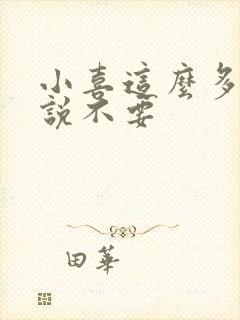 小喜這麼多
說不要
田華